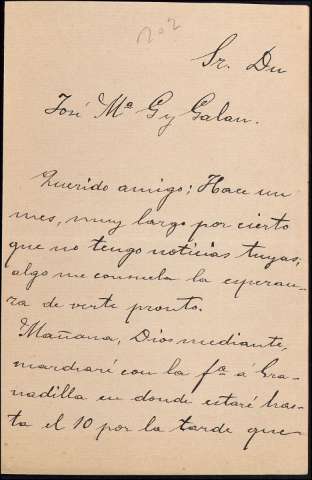 202
Sr. Dn
José Mª G y Galan.
Querido amigo; Hace un
mes, muy largo por cierto
que no tengo noticias tuyas;
algo me consuela la esperan-
za de verte pronto.
Mañana, Dios mediante,
marcharé con la fª á Gra-
nadilla en donde estaré has-
ta el 10 por la tarde que